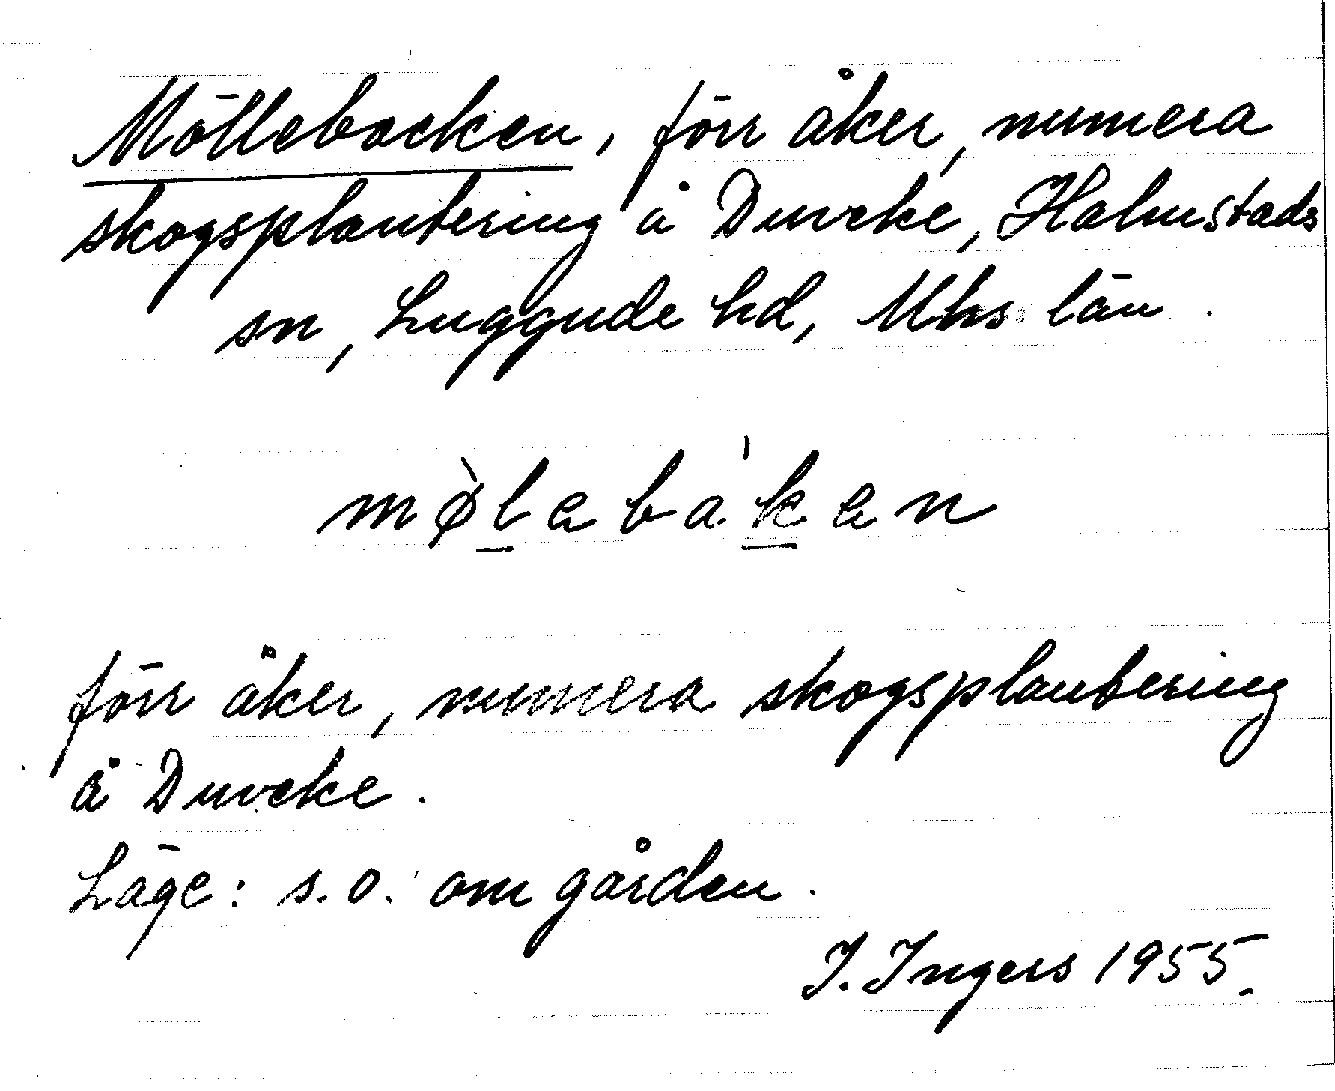 Möllebacken, förr åker, numera
skogsplantering å Duvcke, Halmstads
sn, Luggude hd, Mhs län.
mø̀lebá'ken
förr åker, numera skogsplantering
å Duvcke.
Läge: s.o. om gården.
I. Ingers 1955.